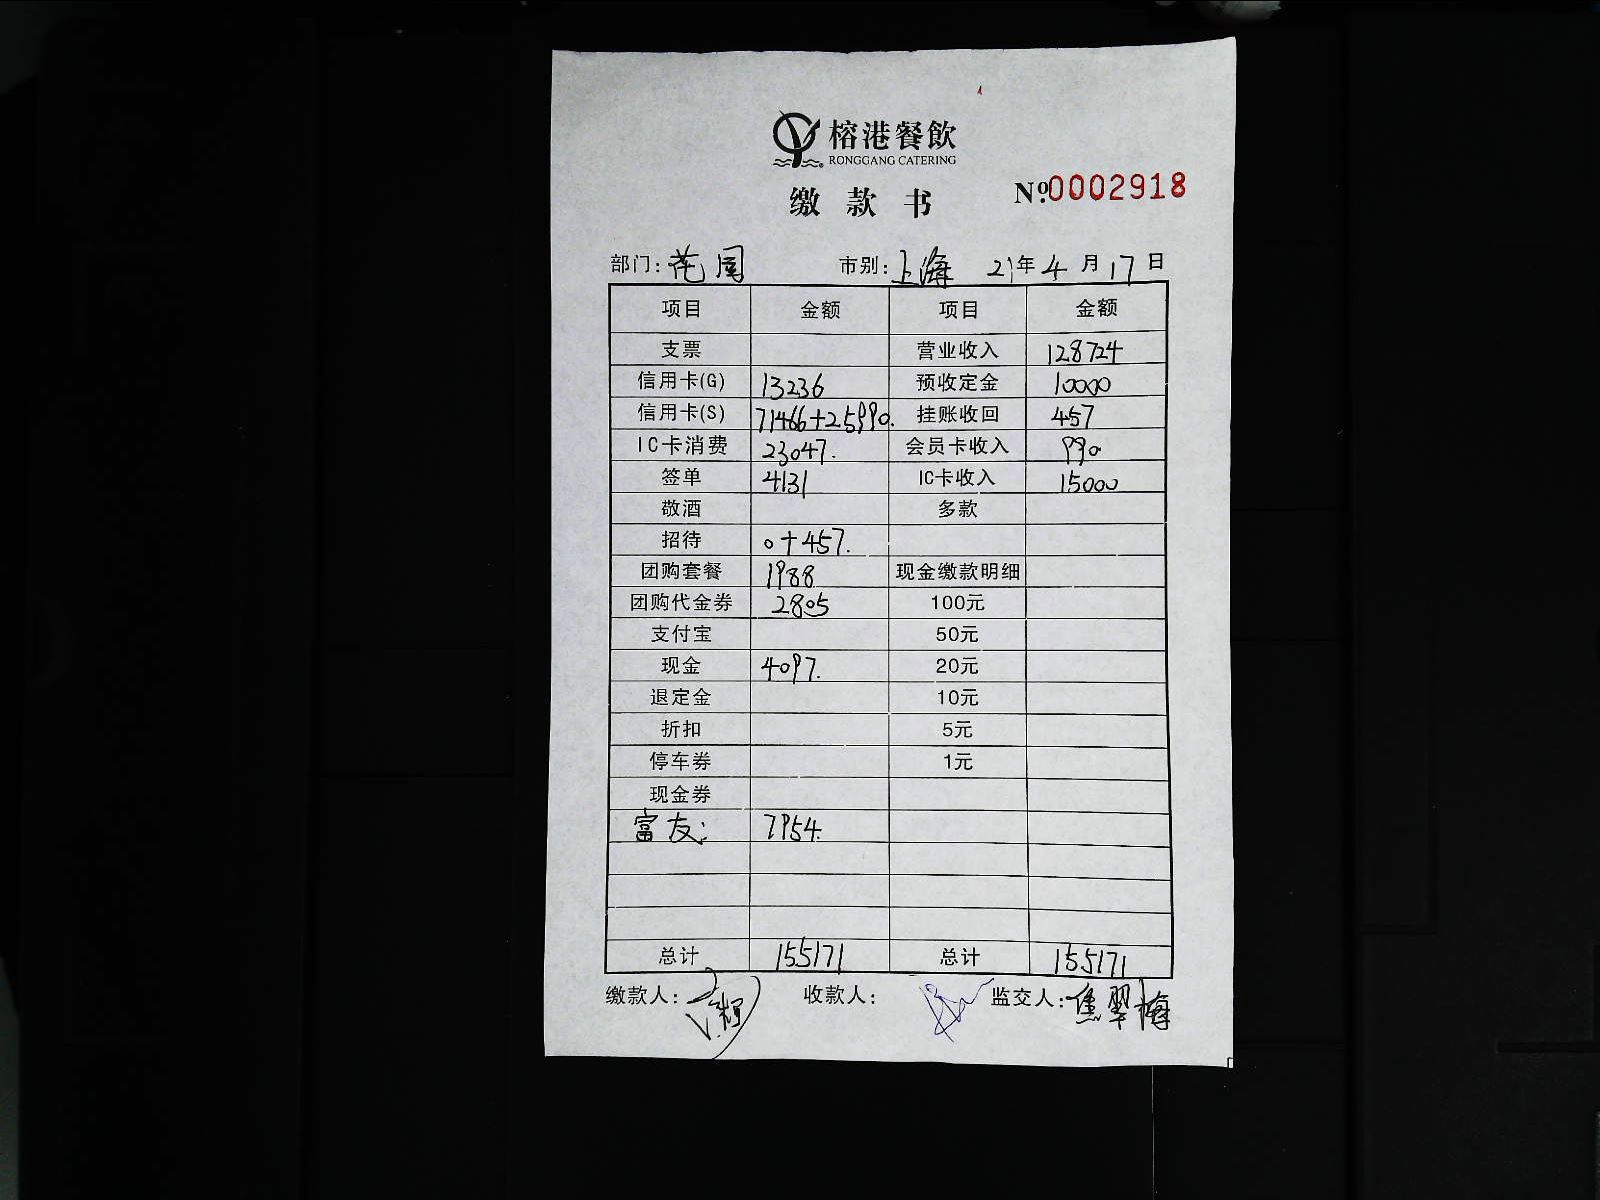 榕港餐飲
RONGGANG CATERING
缴款书 Nº.0002918
部门：花园 市别：上海 21年4月17日
项目 金额 项目 金额
支票 营业收入 128724
信用卡(G) 13236 预收定金 10000
信用卡(S) 71466+25990. 挂账收回 457
IC卡消费 23047. 会员卡收入 990
签单 4131 IC卡收入 15000
敬酒 多款
招待 0+457.
团购套餐 1988 现金缴款明细
团购代金券 2805 100元
支付宝 50元
现金 4097. 20元
退定金 10元
折扣 5元
停车券 1元
现金券
富友： 7954.
总计 155171 总计 155171
缴款人： 收款人： 监交人：焦翠梅